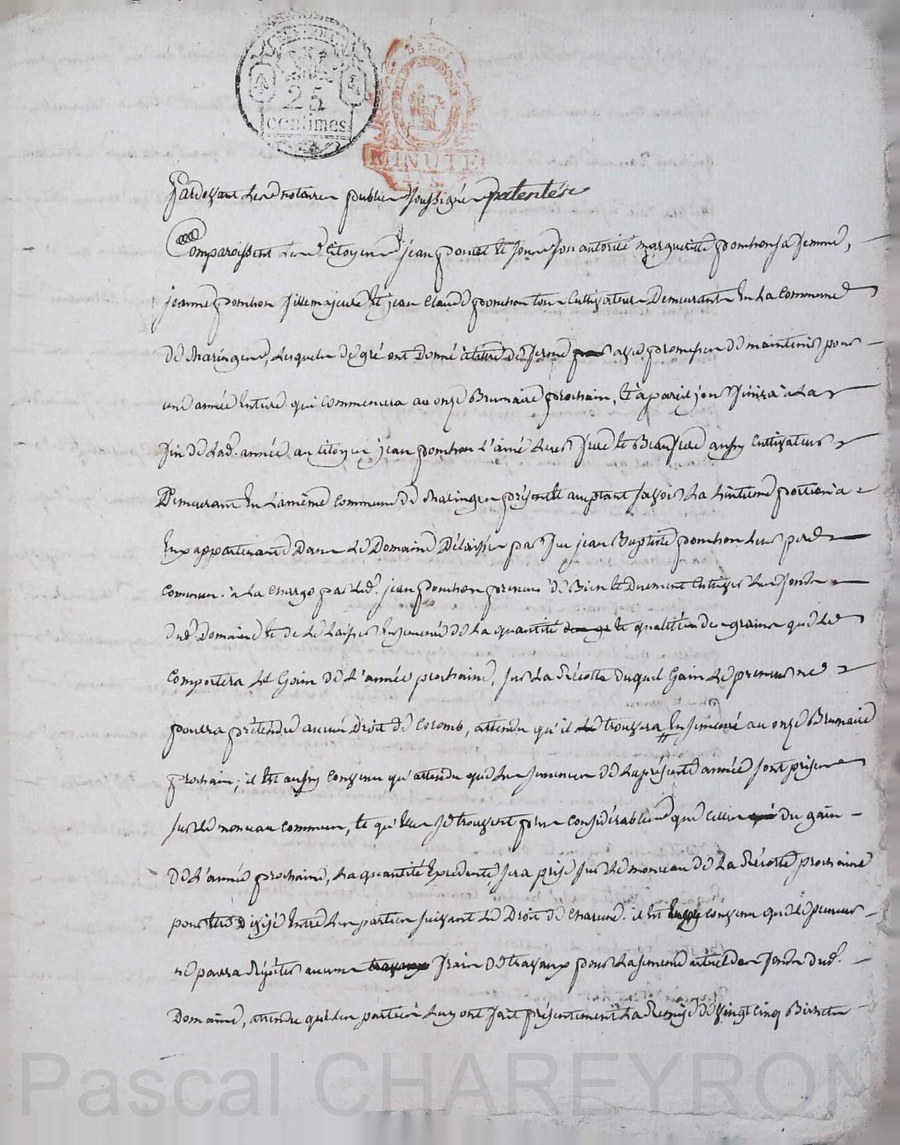 25
centimes
MINUTE
Pardevant les notaires publics soussignés patentés
Comparoissent les citoyens jean ponet et sous son autorité marguerite ponchon sa femme,
jeanne ponchon fille majeure et jean claude ponchon tous cultivateurs demeurants en la commune
de maringes, lesquels de gré ont donné à titre de ferme avec promesse de maintenir pour
une année entiere qui commencera au onze Brumaire prochain, et à pareil jour finira à la
fin de lad. année, au citoyen jean ponchon l'ainé leur frere et Beaufrere aussy cultivateur
Demeurant en la même commune de maringes présent et acceptant savoir la huitieme portion à
eux appartenante dans le Domaine délaissé par feu jean Baptiste ponchon leur pere
commun. à la charge par led. jean ponchon preneur de Bien et duement cultiver les fonds
dud. Domaine et de le laisser ensemencé de la quantité et qualité des grains que le
comportera le gain de l'année prochaine, sur la récolte duquel gain le preneur ne
pourra prétendre aucun droit de colomb, attendu qu'il trouvera ensemencé au onze Brumaire
prochain; il est aussy convenu qu'attendu que les semences de la présente année sont prises
sur le monceau commun, et qu'elles se trouvent plus considérables que celles du gain
de l'année prochaine, la quantité excedente sera prise sur le monceau de la récolte prochaine
pour être divisé entre les parties suivant le droit de chacune. il est convenu que le preneur
ne pourra répéter aucuns frais de travaux pour la semence actuel des fonds dud.
Domaine, attendu que les parties luy ont fait présentement la remise de vingt cinq Bichets
Pascal CHAREYRON